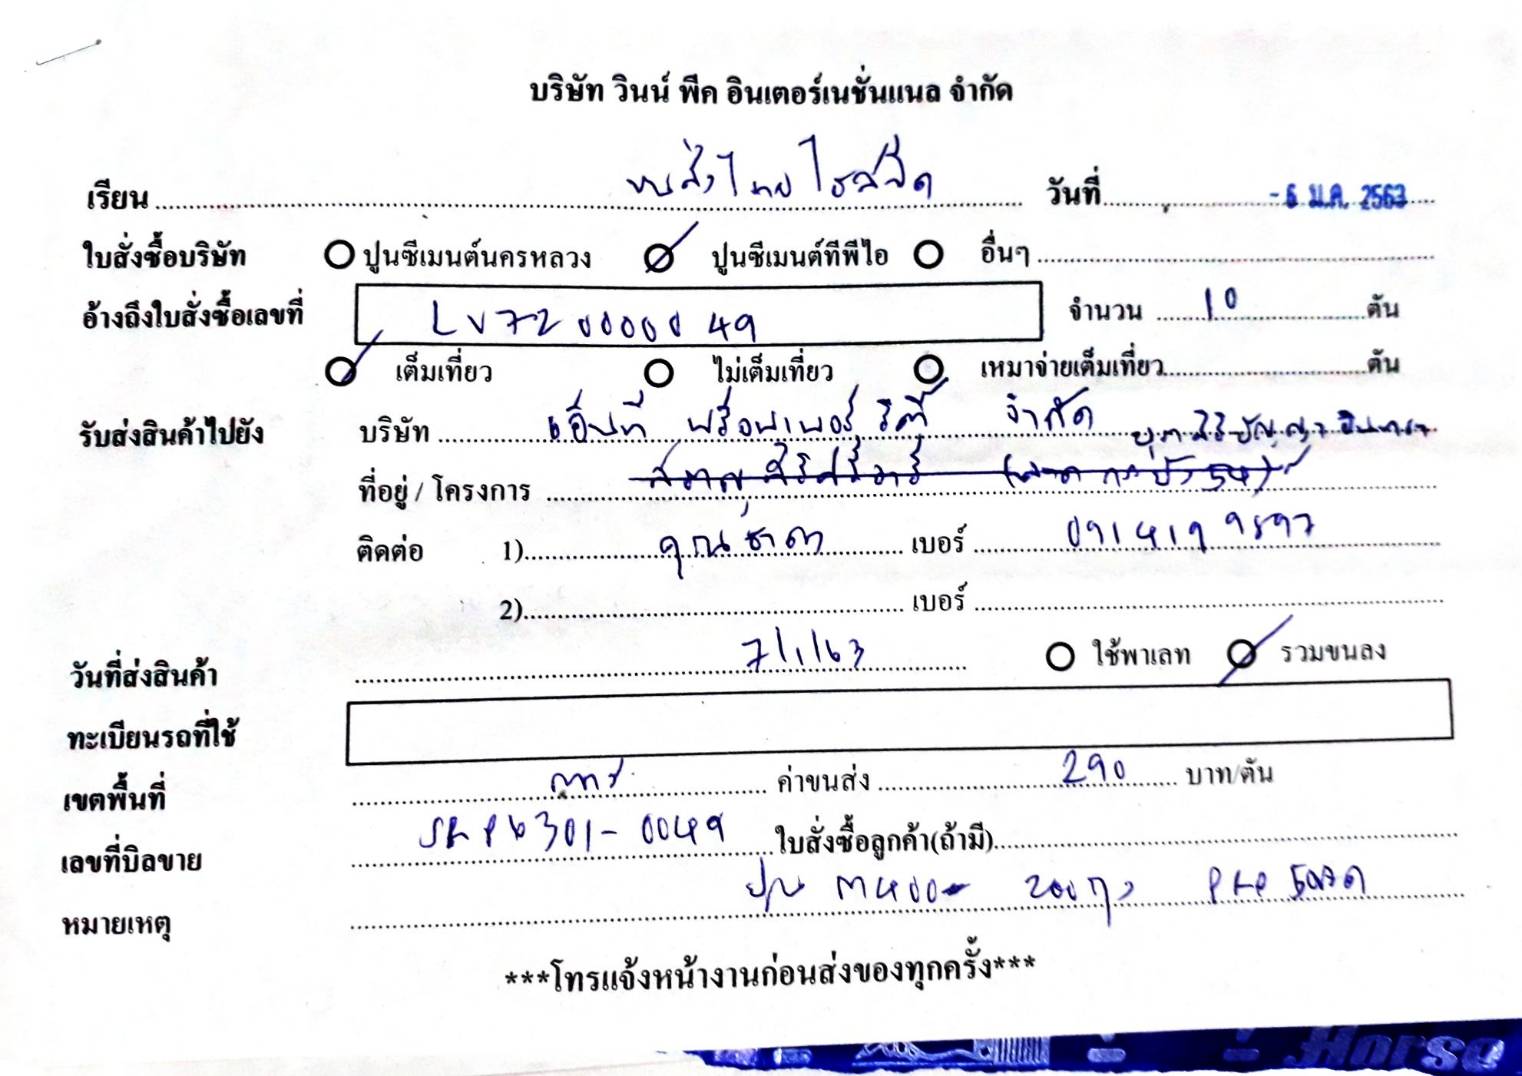 บริษัท วินน์ พีค อินเตอร์เนชั่นแนล จำกัด
เรียน ขนส่งไทย วันที่ - 6 ม.ค. 2563
ใบสั่งซื้อบริษัท ปูนซีเมนต์นครหลวง ปูนซีเมนต์ทีพีไอ อื่นๆ
อ้างถึงใบสั่งซื้อเลขที่ LV7200000049 จำนวน 10 ตัน
เต็มเที่ยว ไม่เต็มเที่ยว เหมาจ่ายเต็มเที่ยว ตัน
รับส่งสินค้าไปยัง บริษัท เอ็นที พร็อพเพอร์ตี้ จำกัด
ที่อยู่ / โครงการ
ติดต่อ 1) คุณธาดา เบอร์ 0914199597
2) เบอร์
วันที่ส่งสินค้า 7/1/63 ใช้พาเลท รวมขนลง
ทะเบียนรถที่ใช้
เขตพื้นที่ ค่าขนส่ง 290 บาท/ตัน
เลขที่บิลขาย 6301-0049 ใบสั่งซื้อลูกค้า(ถ้ามี)
หมายเหตุ ปูน M400 200 ถุง
***โทรแจ้งหน้างานก่อนส่งของทุกครั้ง***
Horse